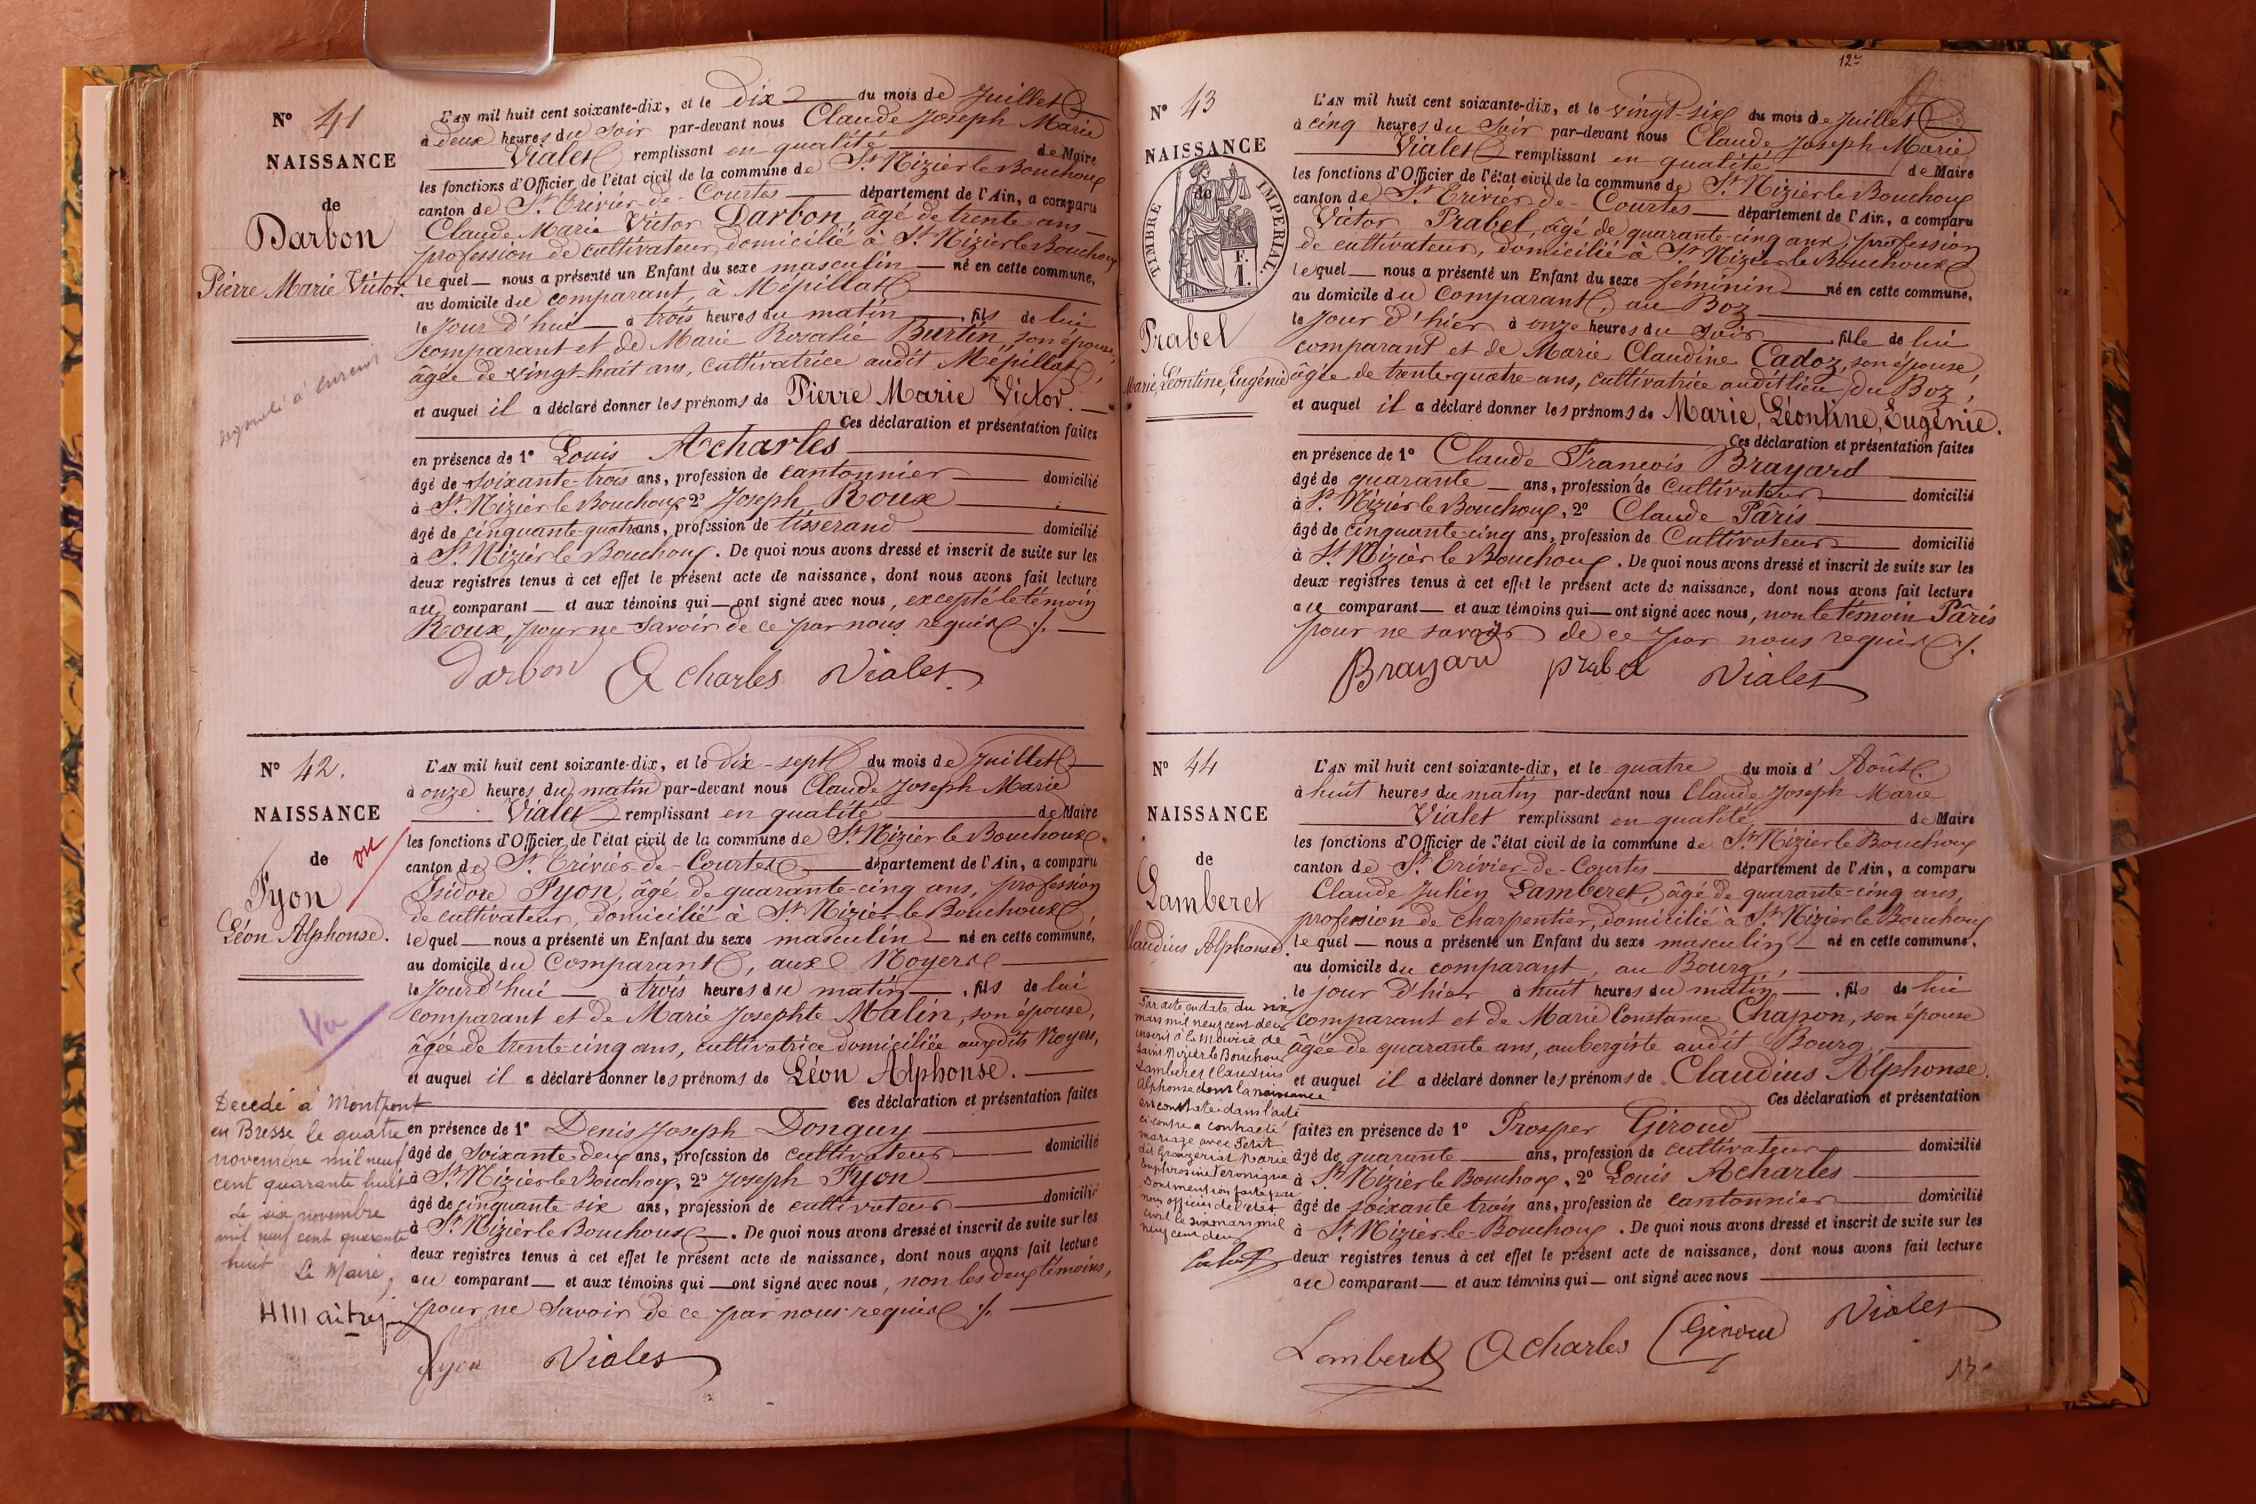 N° 41
NAISSANCE
de
Darbon
Pierre Marie Victor.
L'AN mil huit cent soixante-dix, et le dix du mois de Juillet
à deux heures du soir par-devant nous Claude Joseph Marie
Vialet remplissant en qualité de Maire
les fonctions d'Officier de l'état civil de la commune de St Nizier le Bouchoux
canton de St Trivier-de-Courtes département de l'Ain, a comparu
Claude Marie Victor Darbon, âgé de trente ans
profession de cultivateur, domicilié à St Nizier le Bouchoux
lequel nous a présenté un Enfant du sexe masculin né en cette commune,
au domicile du comparant, à Mépillat
le Jour d'hui à trois heures du matin, fils de lui
comparant et de Marie Rosalie Burtin, son épouse,
âgée de vingt-huit ans, cultivatrice audit Mépillat,
et auquel il a déclaré donner les prénoms de Pierre Marie Victor.
Ces déclaration et présentation faites
en présence de 1° Louis Acharles
âgé de soixante-trois ans, profession de cantonnier domicilié
à St Nizier le Bouchoux, 2° Joseph Roux
âgé de cinquante-quatre ans, profession de tisserand domicilié
à St Nizier le Bouchoux. De quoi nous avons dressé et inscrit de suite sur les
deux registres tenus à cet effet le présent acte de naissance, dont nous avons fait lecture
au comparant et aux témoins qui ont signé avec nous, excepté le témoin
Roux, pour ne savoir de ce par nous requis ./.
Darbon Acharles Vialet
N° 42.
NAISSANCE
de
Fyon
Léon Alphonse.
vu
Vu
Décédé à Montpont
en Bresse le quatre
novembre mil neuf
cent quarante huit
Le six novembre
mil neuf cent quarante
huit Le Maire,
L'AN mil huit cent soixante-dix, et le dix-sept du mois de Juillet
à onze heures du matin par-devant nous Claude Joseph Marie
Vialet remplissant en qualité de Maire
les fonctions d'Officier de l'état civil de la commune de St Nizier le Bouchoux
canton de St Trivier-de-Courtes département de l'Ain, a comparu
Isidore Fyon, âgé de quarante-cinq ans, profession
de cultivateur, domicilié à St Nizier le Bouchoux,
lequel nous a présenté un Enfant du sexe masculin né en cette commune,
au domicile du Comparant, aux Noyers
le Jourd'hui à trois heures du matin, fils de lui
comparant et de Marie Josephte Malin, son épouse,
âgée de trente-cinq ans, cultivatrice domiciliée auxdits Noyers,
et auquel il a déclaré donner les prénoms de Léon Alphonse.
Ces déclaration et présentation faites
en présence de 1° Denis Joseph Donguy
âgé de soixante-deux ans, profession de cultivateur domicilié
à St Nizier le Bouchoux, 2° Joseph Fyon
âgé de cinquante-six ans, profession de cultivateur domicilié
à St Nizier le Bouchoux. De quoi nous avons dressé et inscrit de suite sur les
deux registres tenus à cet effet le présent acte de naissance, dont nous avons fait lecture
au comparant et aux témoins qui ont signé avec nous, non les deux témoins,
pour ne savoir de ce par nous requis ./.
fyon Vialet
N° 43
NAISSANCE
de
TIMBRE IMPERIAL
F.
1.
Prabel
Marie, Léontine, Eugénie
L'AN mil huit cent soixante-dix, et le vingt-six du mois de Juillet
à cinq heures du soir par-devant nous Claude Joseph Marie
Vialet remplissant en qualité de Maire
les fonctions d'Officier de l'état civil de la commune de St Nizier le Bouchoux
canton de St Trivier-de-Courtes département de l'Ain, a comparu
Victor Prabel, âgé de quarante-cinq ans, profession
de cultivateur, domicilié à St Nizier le Bouchoux
lequel nous a présenté un Enfant du sexe féminin né en cette commune,
au domicile du Comparant, au Boz
le Jour d'hier à onze heures du soir, fille de lui
comparant et de Marie Claudine Cadoz, son épouse,
âgée de trente-quatre ans, cultivatrice audit lieu du Boz,
et auquel il a déclaré donner les prénoms de Marie, Léontine, Eugénie.
Ces déclaration et présentation faites
en présence de 1° Claude François Brayard
âgé de quarante ans, profession de Cultivateur domicilié
à St Nizier le Bouchoux, 2° Claude Pâris
âgé de cinquante-cinq ans, profession de Cultivateur domicilié
à St Nizier le Bouchoux. De quoi nous avons dressé et inscrit de suite sur les
deux registres tenus à cet effet le présent acte de naissance, dont nous avons fait lecture
au comparant et aux témoins qui ont signé avec nous, non le témoin Pâris
pour ne savoir de ce par nous requis ./.
Brayard prabel Vialet
N° 44
NAISSANCE
de
Lamberet
Claudius Alphonse.
Par acte en date du six
mars mil neuf cent deux
inscrit à la mairie de
Saint Nizier le Bouchoux
Lamberet Claudius
Alphonse dont la naissance
est constatée dans l'acte
ci contre a contracté
mariage avec Petit
dit Grangeriat Marie
Euphrosine Véronique
Dont mention faite par
nous officier de l'état
civil le six mars mil
neuf cent deux
L'AN mil huit cent soixante-dix, et le quatre du mois d'Août.
à huit heures du matin par-devant nous Claude Joseph Marie
Vialet remplissant en qualité de Maire
les fonctions d'Officier de l'état civil de la commune de St Nizier le Bouchoux
canton de St Trivier-de-Courtes département de l'Ain, a comparu
Claude Julien Lamberet, âgé de quarante-cinq ans,
profession de charpentier, domicilié à St Nizier le Bouchoux
lequel nous a présenté un Enfant du sexe masculin né en cette commune,
au domicile du comparant, au Bourg,
le jour d'hier à huit heures du matin, fils de lui
comparant et de Marie Constance Chapon, son épouse
âgée de quarante ans, aubergiste audit Bourg
et auquel il a déclaré donner les prénoms de Claudius Alphonse.
Ces déclaration et présentation
faites en présence de 1° Prosper Giroud
âgé de quarante ans, profession de cultivateur domicilié
à St Nizier le Bouchoux, 2° Louis Acharles
âgé de soixante trois ans, profession de cantonnier domicilié
à St Nizier-le-Bouchoux. De quoi nous avons dressé et inscrit de suite sur les
deux registres tenus à cet effet le présent acte de naissance, dont nous avons fait lecture
au comparant et aux témoins qui ont signé avec nous
Lamberet Acharles Giroud Vialet